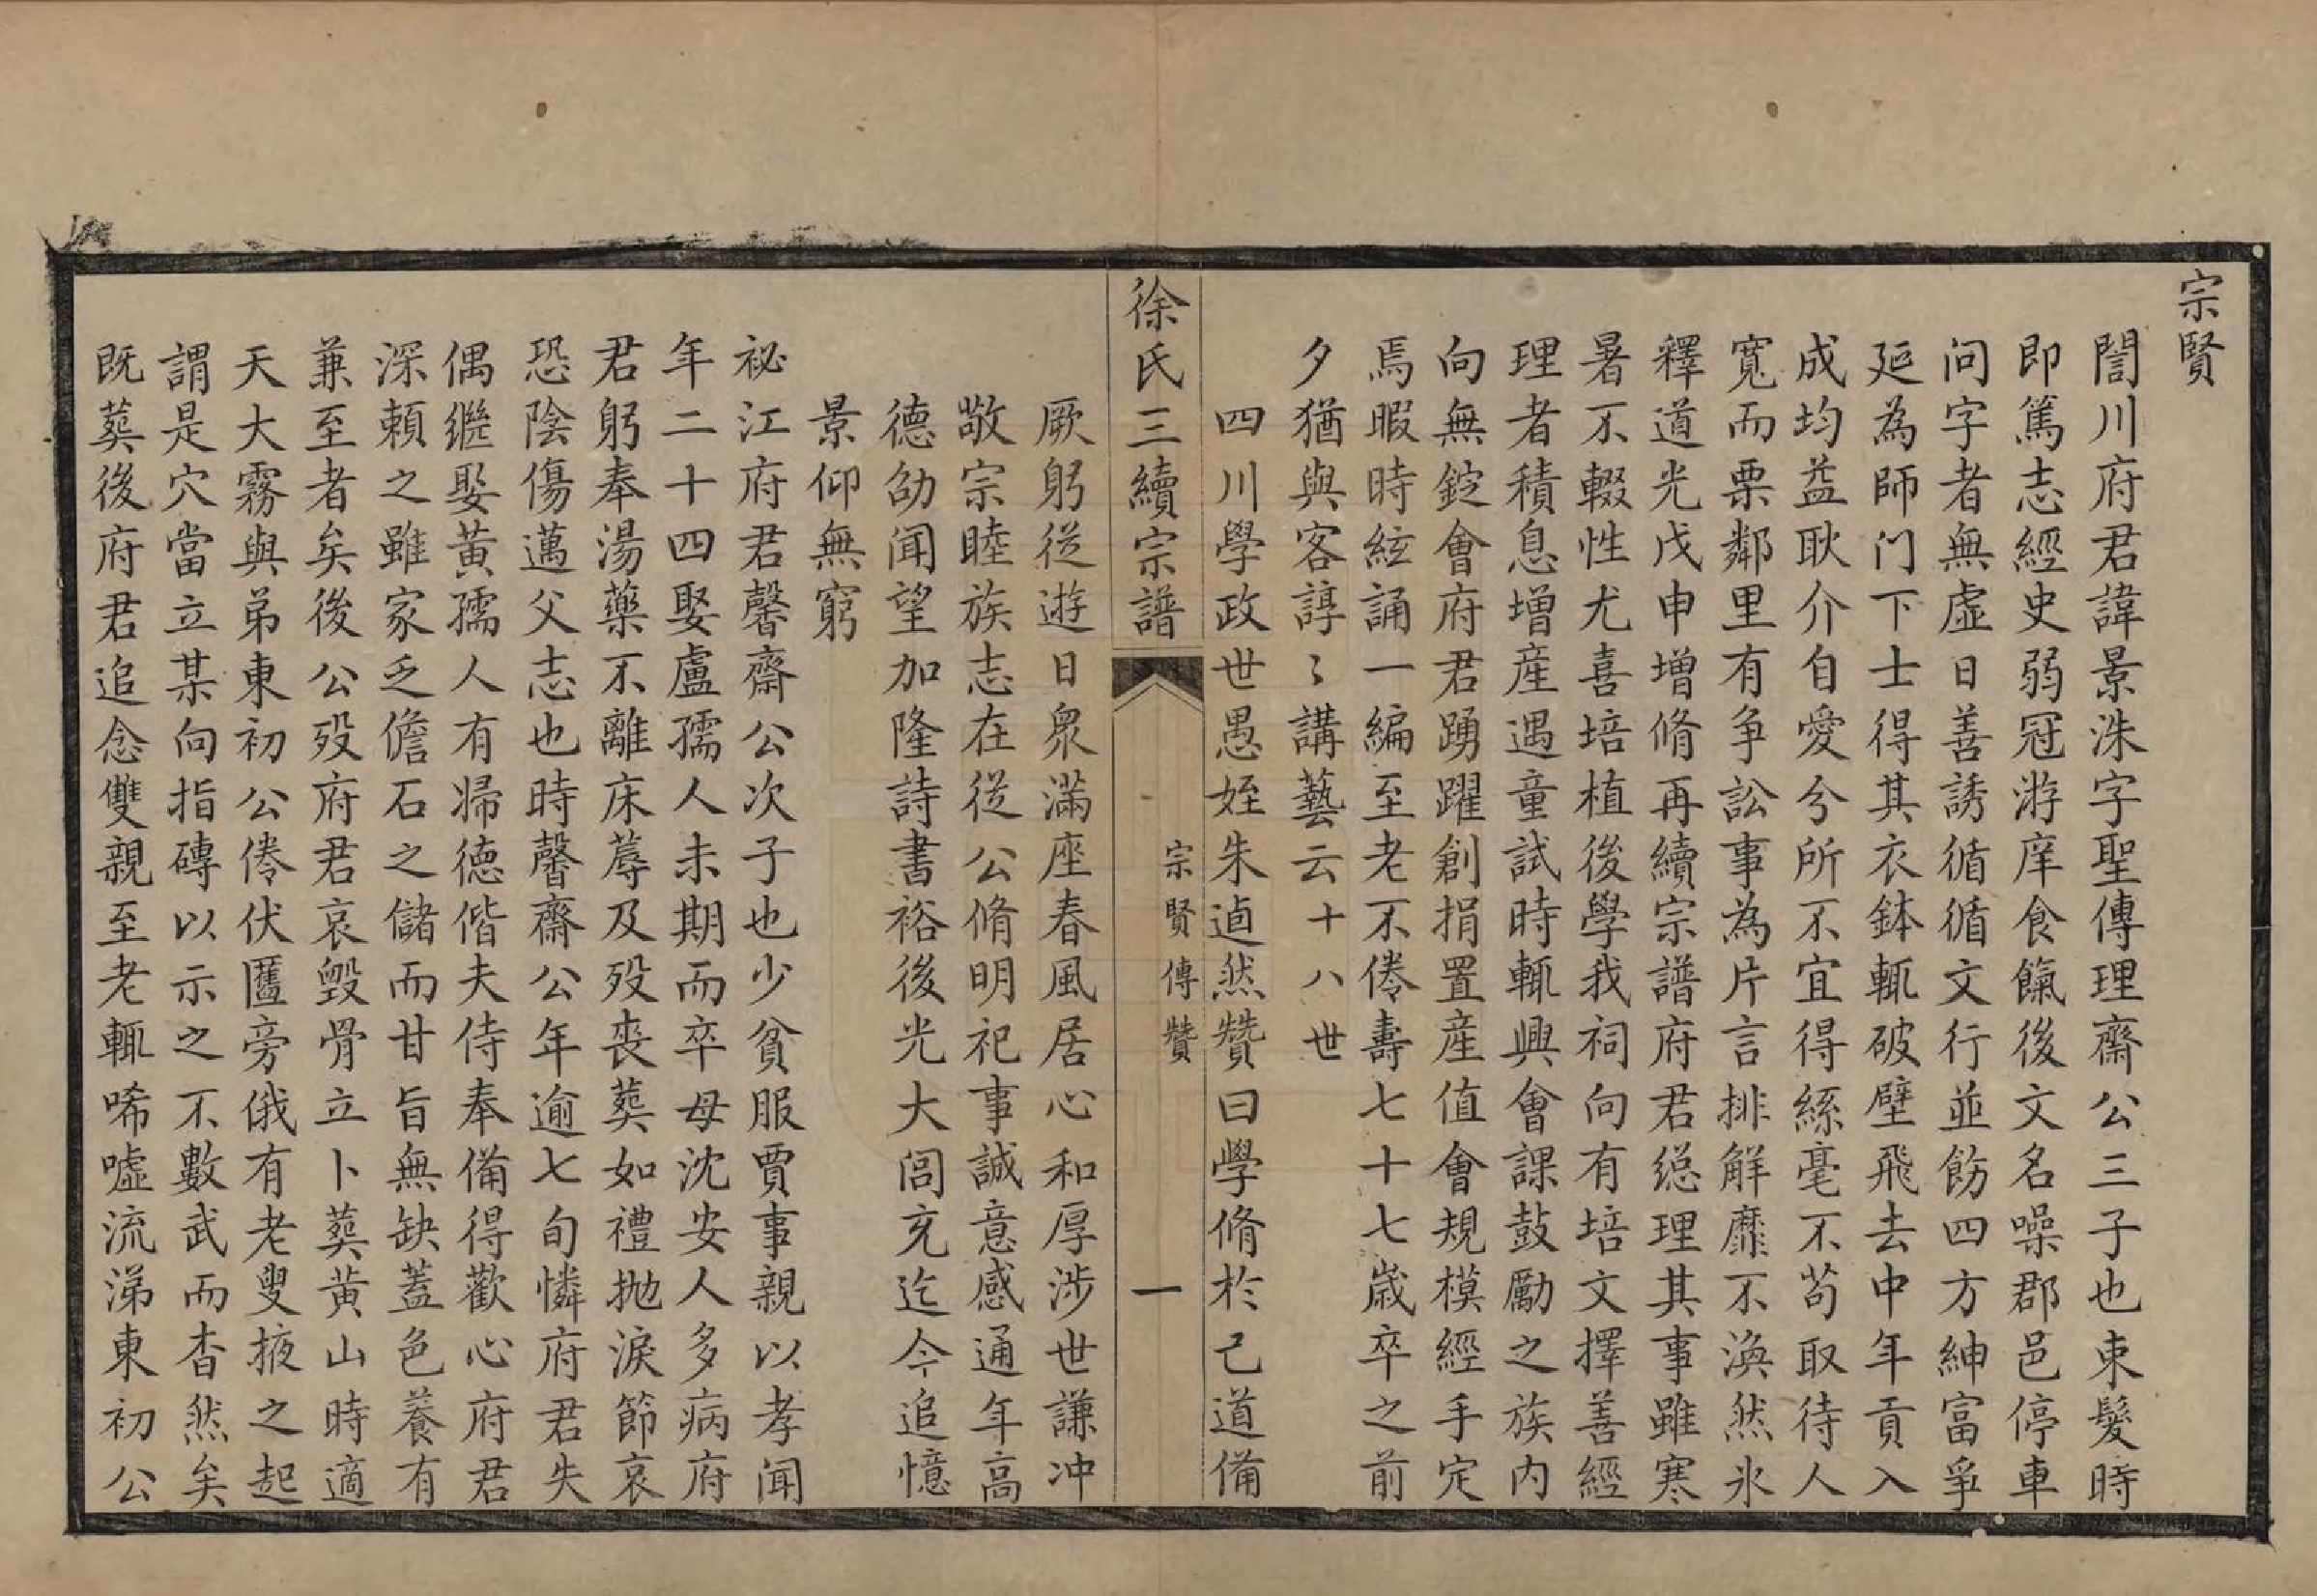 宗賢
誾川府君諱景洙字聖傳理齋公三子也束髮時
即篤志經史弱冠游庠食餼後文名噪郡邑停車
问字者無虛日善誘循循文行並飭四方紳富爭
延為師门下士得其衣鉢輒破壁飛去中年貢入
成均益耿介自愛兮所不宜得絲毫不苟取待人
寬而栗鄰里有争訟事為片言排解靡不渙然氷
釋道光戊申增脩再續宗譜府君總理其事雖寒
暑不輟性尤喜培植後學我祠向有培文擇善經
理者積息增産遇童試時輒興會課鼓勵之族内
向無錠會府君踴躍創捐置産值會規模經手定
焉暇時絃誦一編至老不倦壽七十七歲卒之前
夕猶與客諄〻講藝云十八世
四川學政世愚姪朱逌然贊曰學脩於己道備
徐氏三續宗譜
宗賢傳贊
一
厥躬從遊日衆滿座春風居心和厚涉世謙冲
敬宗睦族志在從公脩明祀事誠意感通年高
德劭闻望加隆詩書裕後光大閭充迄今追憶
景仰無窮
祕江府君馨齋公次子也少貧服賈事親以孝聞
年二十四娶盧孺人未期而卒母沈安人多病府
君躬奉湯藥不離床蓐及歿喪葬如禮抛淚節哀
恐陰傷邁父志也時馨齋公年逾七旬憐府君失
偶繼娶黃孺人有婦德偕夫侍奉備得歡心府君
深賴之雖家乏儋石之儲而甘旨無缺蓋色養有
兼至者矣後公歿府君哀毀骨立卜葬黃山時適
天大霧與弟東初公倦伏匶旁俄有老叟掖之起
謂是穴當立某向指磚以示之不數武而杳然矣
既葬後府君追念雙親至老輒唏噓流涕東初公